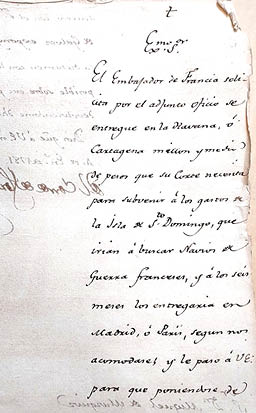 Exmo. Sor.
El Embajador de Francia soli-
cita por el adjunto oficio se
entregue en la Havana, ó
Cartagena millon y medio
de pesos que su Corte necesita
para subvenir á los gastos de
la Isla de Sto. Domingo, que
irian á buscar Navios de
Guerra franceses, y á los seis
meses los entregaria en
Madrid, ó Paris, segun nos
acomodase; y le paso á VE.
para que poniendose de